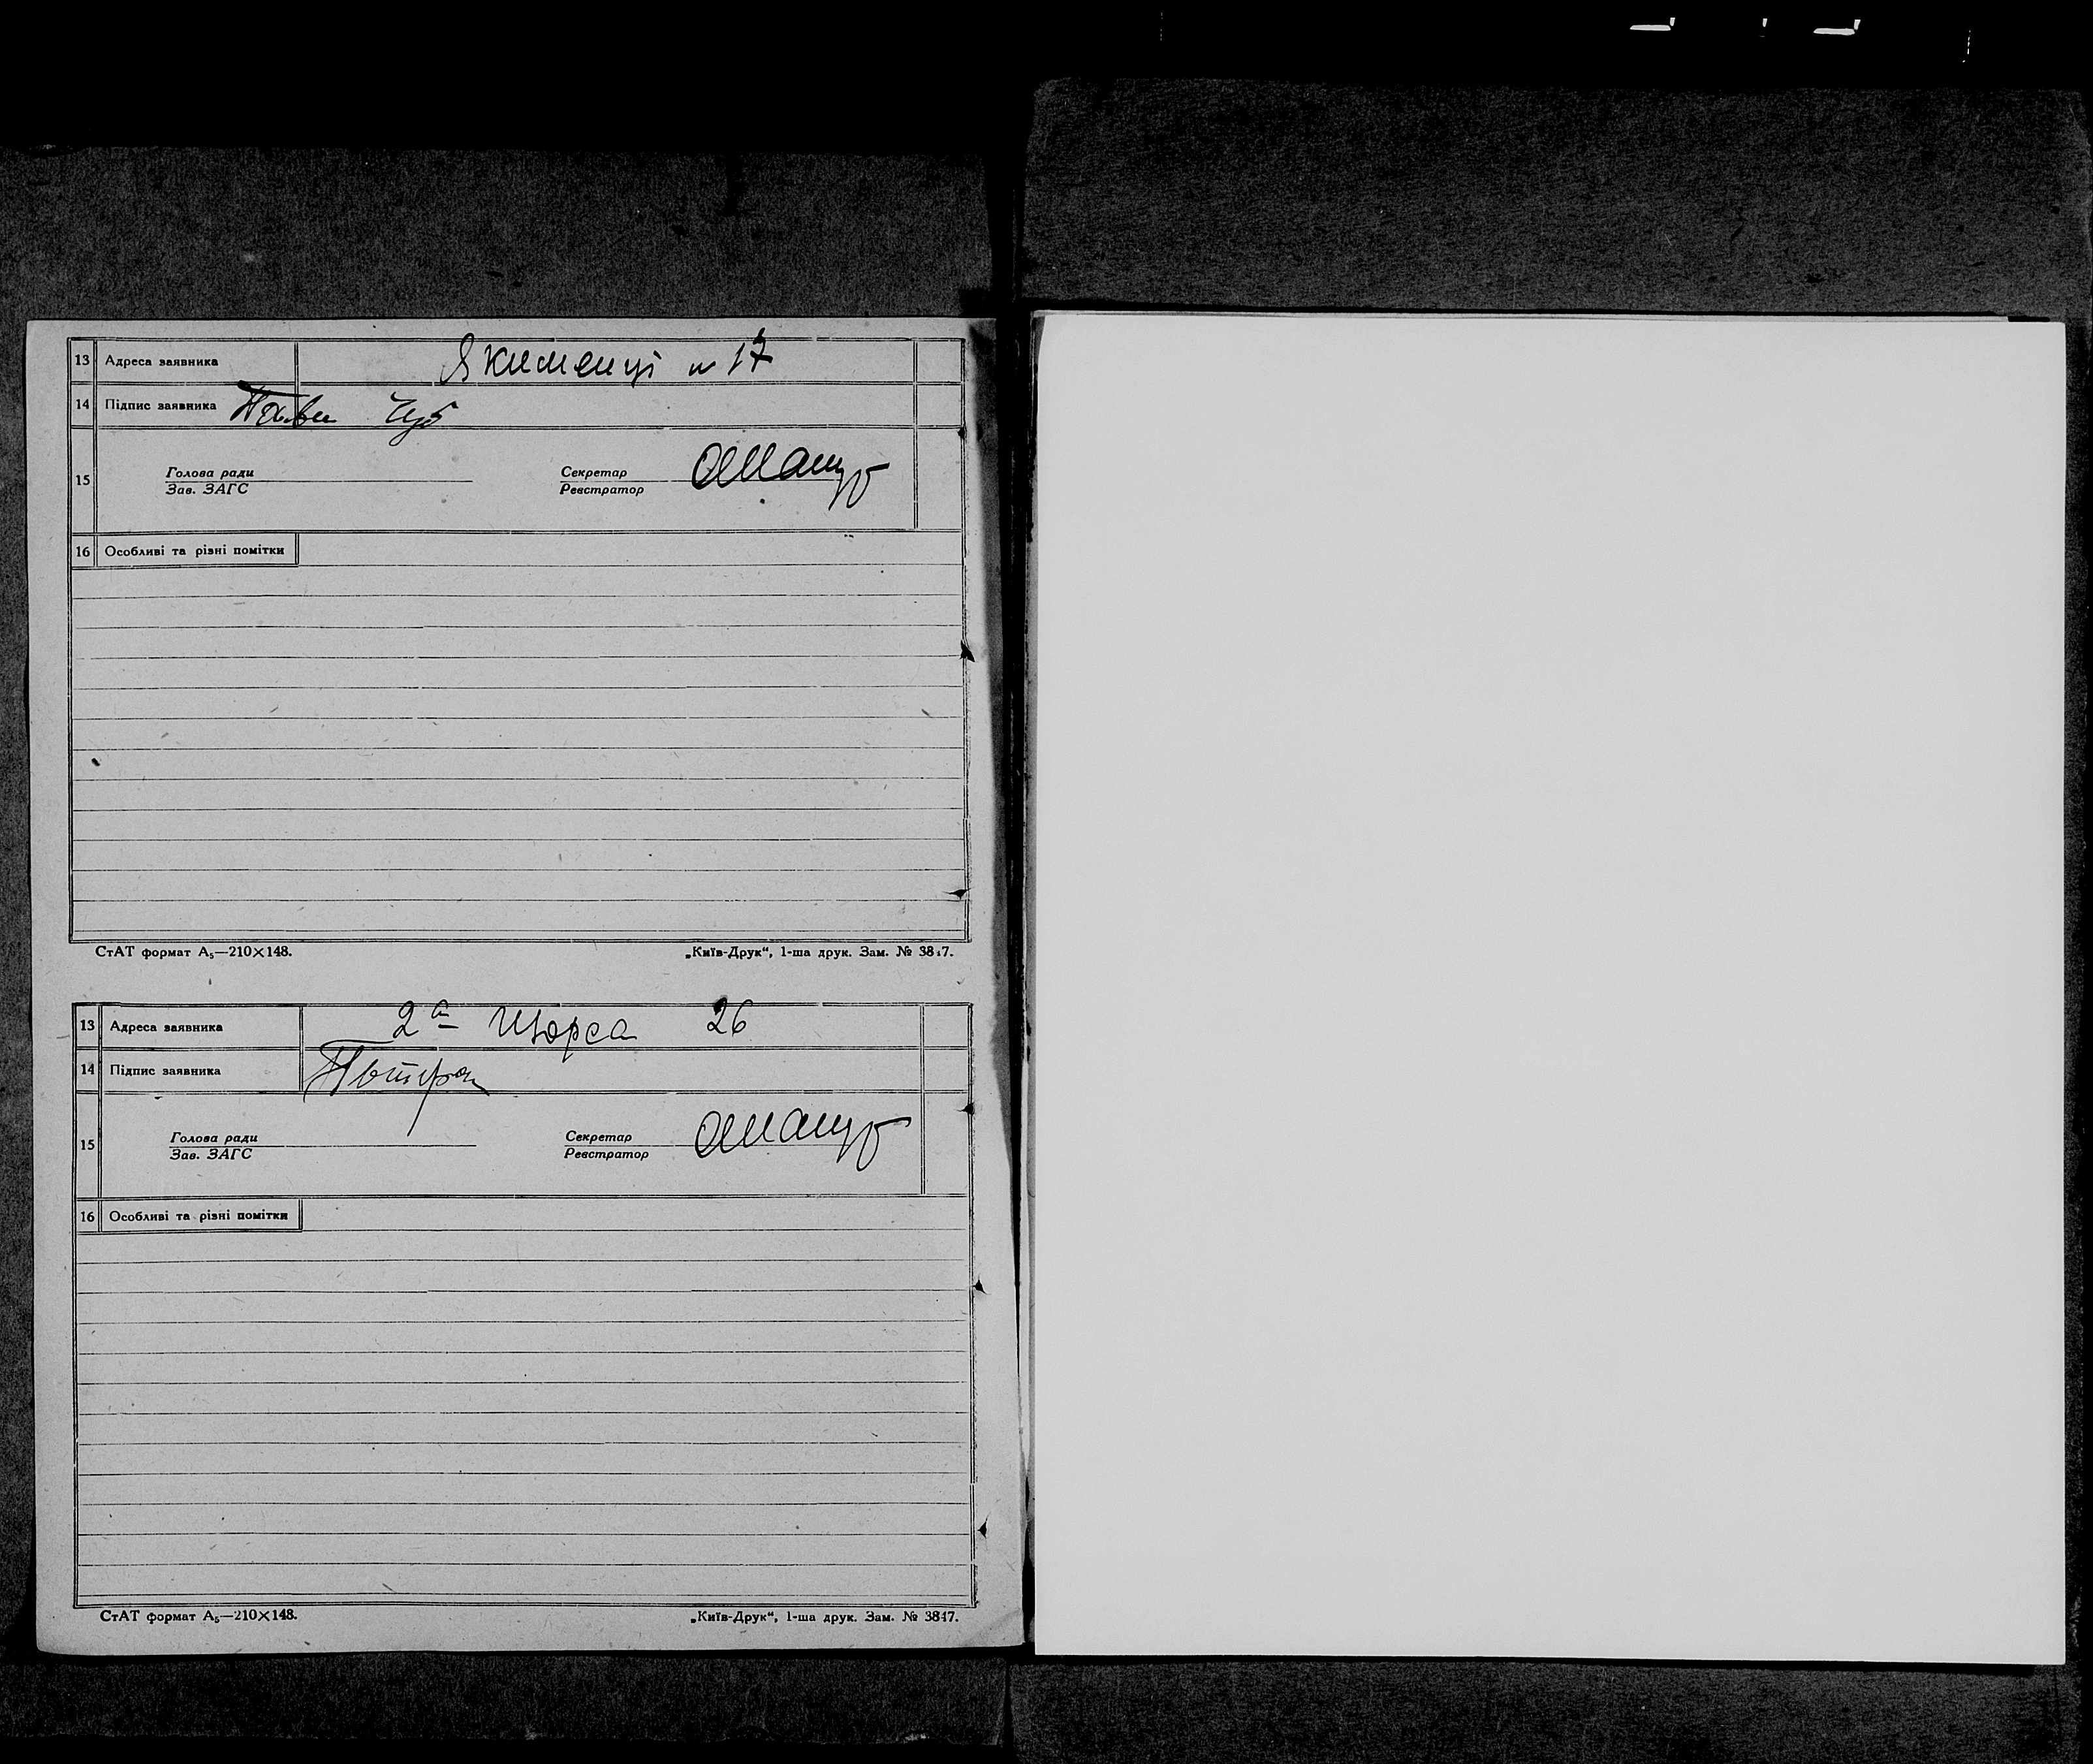 13 Адреса заявника Якименці № 17
14 Підпис заявника Чуб
15 Голова ради Секретар
Зав. ЗАГС Реєстратор
16 Особливі та різні помітки
СтАТ формат А₅—210×148. „Київ-Друк“, 1-ша друк. Зам. № 3817.
13 Адреса заявника 2а Щорса 26
14 Підпис заявника
15 Голова ради Секретар
Зав. ЗАГС Реєстратор
16 Особливі та різні помітки
СтАТ формат А₅—210×148. „Київ-Друк“, 1-ша друк. Зам. № 3817.